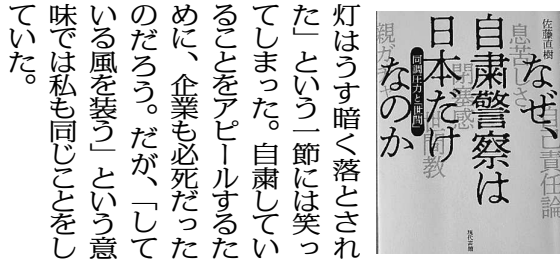 佐藤直樹
なぜ、
自粛警察は
日本だけ
なのか
同調圧力と世間
自己責任論
息苦しさ
閉塞感
現代書館
灯はうす暗く落とされ
た」という一節には笑っ
てしまった。自粛してい
ることをアピールするた
めに、企業も必死だった
のだろう。だが、「して
いる風を装う」という意
味では私も同じことをし
ていた。